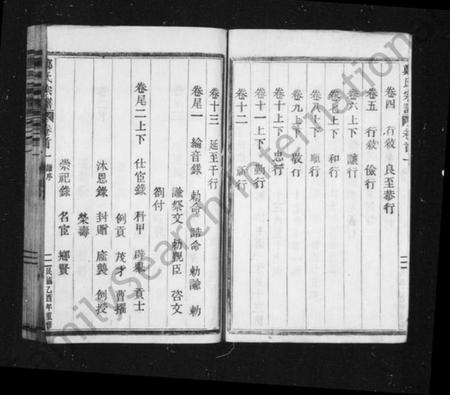 卷四 行敘 良至恭行
卷五 行敘 儉行
卷六上下 讓行
卷七上下 和行
卷八上下 順行
卷九上下 敬行
卷十上下 忠行
卷十一上下 勳行
卷十二
卷十三 延至千行
卷尾一 綸音錄 勅命 誥命 勅諭 勅
諭祭文 勅親臣 啓文
劄付
卷尾二上下 仕宦錄 科甲 辟舉 貢士
例貢 茂才 曹掾
沐恩錄 封贈 廕襲 劄授
榮壽
崇祀錄 名宦 鄉賢
鄭氏宗譜 卷首一
民國乙酉年重修
FamilySearch International